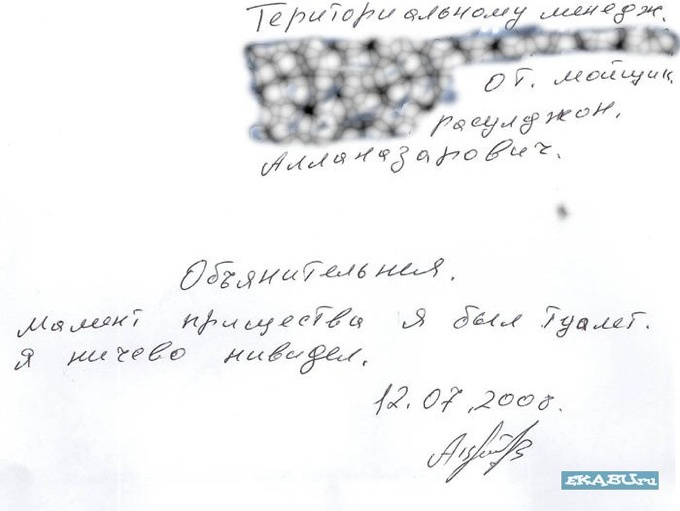 Териториальному менедж.
от. мойщик
расулджон.
Алланазарович.
Объянительная.
Мамент прищества я был туалет.
я ничево нивидел.
12.07.2008.
EKABU.ru